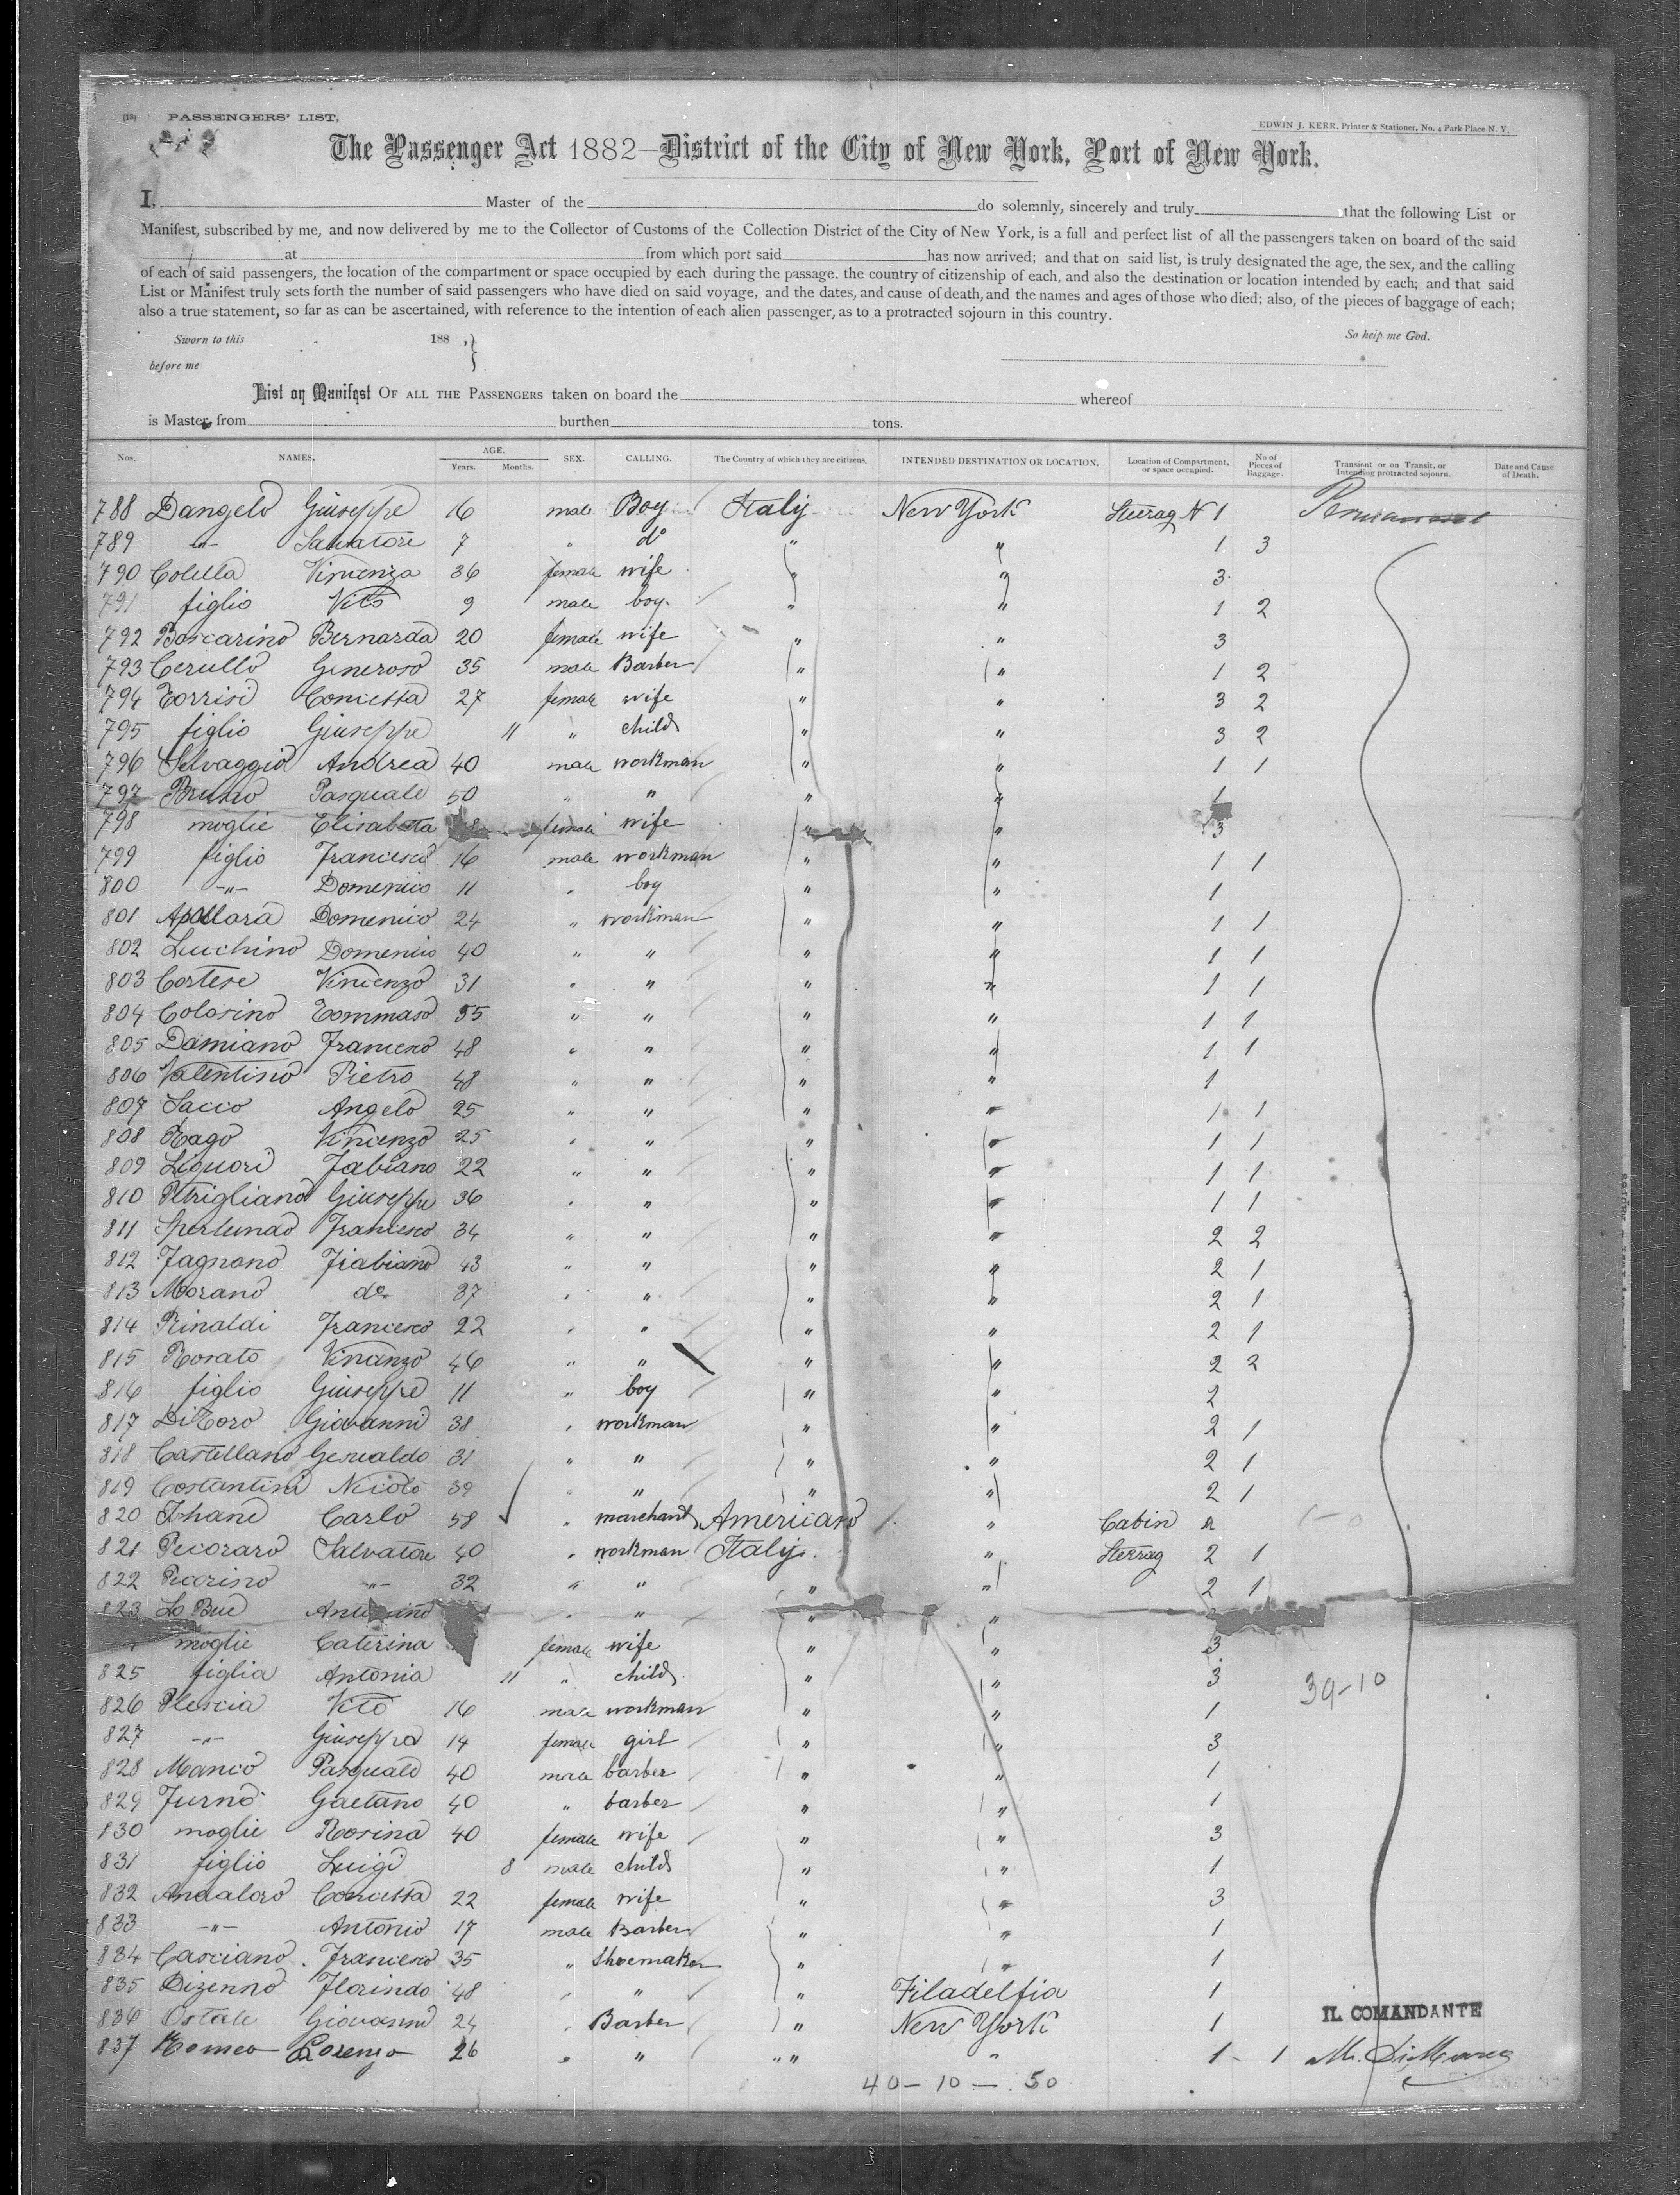 (18) PASSENGERS' LIST,
EDWIN J. KERR, Printer & Stationer, No. 4 Park Place N. Y.
The Passenger Act 1882—District of the City of New York, Port of New York.
I, Master of the do solemnly, sincerely and truly that the following List or
Manifest, subscribed by me, and now delivered by me to the Collector of Customs of the Collection District of the City of New York, is a full and perfect list of all the passengers taken on board of the said
at from which port said has now arrived; and that on said list, is truly designated the age, the sex, and the calling
of each of said passengers, the location of the compartment or space occupied by each during the passage. the country of citizenship of each, and also the destination or location intended by each; and that said
List or Manifest truly sets forth the number of said passengers who have died on said voyage, and the dates, and cause of death, and the names and ages of those who died; also, of the pieces of baggage of each;
also a true statement, so far as can be ascertained, with reference to the intention of each alien passenger, as to a protracted sojourn in this country.
Sworn to this 188 , } So help me God.
before me
List or Manifest OF ALL THE PASSENGERS taken on board the whereof
is Master, from burthen tons.
Nos. NAMES. AGE. Years. Months. SEX. CALLING. The Country of which they are citizens. INTENDED DESTINATION OR LOCATION. Location of Compartment, or space occupied. No of Pieces of Baggage. Transient or on Transit, or Intending protracted sojourn. Date and Cause of Death.
788 Dangelo Giuseppe 16 male Boy Italy New York Steerag N 1 Permanent
789 -"- Salvatore 7 " do " " 1 3
790 Colella Vincenza 36 female wife " " 3
791 figlio Vito 9 male boy " " 1 2
792 Boscarino Bernarda 20 female wife " " 3
793 Cerullo Generoso 35 male Barber " " 1 2
794 Torrisi Concetta 27 female wife " " 3 2
795 figlio Giuseppe 11 " child " " 3 2
796 Selvaggio Andrea 40 male workman " " 1 1
797 Bruno Pasquale 50 " " " " 1
798 moglie Elisabetta female wife " " 3
799 figlio Francesco 16 male workman " " 1 1
800 -"- Domenico 11 " boy " " 1
801 Apollara Domenico 24 " workman " " 1 1
802 Lucchino Domenico 40 " " " " 1 1
803 Cortese Vincenzo 31 " " " " 1 1
804 Colosino Tommaso 55 " " " " 1 1
805 Damiano Francesco 48 " " " " 1 1
806 Valentino Pietro 48 " " " " 1
807 Sacco Angelo 25 " " " " 1 1
808 Rago Vincenzo 25 " " " " 1 1
809 Liguori Fabiano 22 " " " " 1 1
810 Petrigliano Giuseppe 36 " " " " 1 1
811 Francesco 34 " " " " 2 2
812 Fagnano Fiabiano 43 " " " " 2 1
813 Morano do 37 " " " " 2 1
814 Rinaldi Francesco 22 " " " " 2 1
815 Rosato Vincenzo 46 " " " " 2 2
816 figlio Giuseppe 11 " boy " " 2
817 DiToro Giovanni 38 " workman " " 2 1
818 Castellano Gesualdo 31 " " " " 2 1
819 Costantini Nicolo 39 " " " " 2 1
820 Carlo 58 " marchand American " Cabin 1-0
821 Pecoraro Salvatore 40 " workman Italy " Steerag 2 1
822 Pecorino -"- 32 " " " " 2 1
823 Lo Bue Antonino " " " "
moglie Caterina female wife " " 3
825 figlia Antonia 11 " child " " 3 39-10
826 Plescia Vito 16 male workman " " 1
827 -"- Giuseppa 14 female girl " " 3
828 Manco Pasquale 40 male barber " " 1
829 Furno Gaetano 40 " barber " " 1
830 moglie Rosina 40 female wife " " 3
831 figlio Luigi 8 male child " " 1
832 Andaloro Concetta 22 female wife " " 3
833 -"- Antonio 17 male Barber " " 1
834 Casciano Francesco 35 " Shoemaker " " 1
835 Dizenno Florindo 48 " " " Filadelfia 1
836 Ostale Giovanni 24 " Barber " New York 1 IL COMANDANTE
837 Romeo Lorenzo 26 " " " " " 1 1
40 - 10 - 50